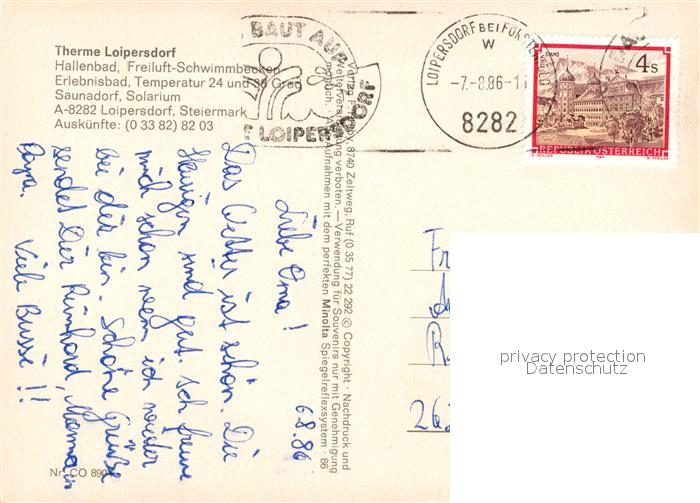 Therme Loipersdorf
Hallenbad, Freiluft-Schwimmbecken
Erlebnisbad, Temperatur 24 und 36 Grad
Saunadorf, Solarium
A-8282 Loipersdorf, Steiermark
Auskünfte: (0 33 82) 82 03
BAUT AUF
LOIPERSDORF
LOIPERSDORF BEI FÜRSTENFELD
W
-7.-8.86-1
8282
4 S
STIFT STAMS
REPUBLIK ÖSTERREICH
8740 Zeltweg, Ruf (0 35 77) 22 292 © Copyright · Nachdruck und
verboten. — Verwendung für Souvenirs nur mit Genehmigung
Aufnahmen mit dem perfekten Minolta Spiegelreflexsystem · 86
6.8.86
Liebe Oma!
Das Wetter ist schön. Die
Heurigen sind gut. Ich freue
mich schon wenn ich wieder
bei dir bin. Schöne Grüße
sendet Dir Reinhard, Mama u.
Papa. Viele Bussi!!
Fr
262
Nr. CO 890
privacy protection
Datenschutz